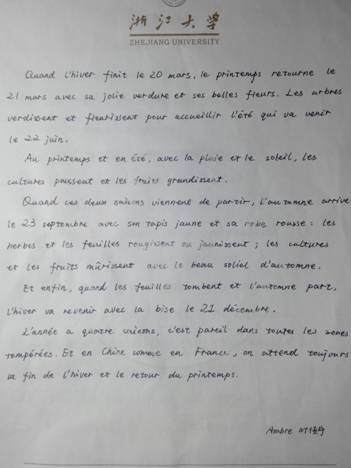 浙江大学
ZHEJIANG UNIVERSITY
Quand l'hiver finit le 20 mars, le printemps retourne le
21 mars avec sa jolie verdure et ses belles fleurs. Les arbres
verdissent et fleurissent pour accueillir l'été qui va venir
le 22 juin.
Au printemps et en été, avec la pluie et le soleil, les
cultures poussent et les fruits grandissent.
Quand ces deux saisons viennent de partir, l'automne arrive
le 23 septembre avec son tapis jaune et sa robe rousse : les
herbes et les feuilles rougissent ou jaunissent ; les cultures
et les fruits mûrissent avec le beau soliel d'automne.
Et enfin, quand les feuilles tombent et l'automne part,
l'hiver va revenir avec la bise le 21 décembre.
L'année a quatre saisons, c'est pareil dans toutes les zones
tempérées. Et en Chine comme en France, on attend toujours
la fin de l'hiver et le retour du printemps.
Ambre